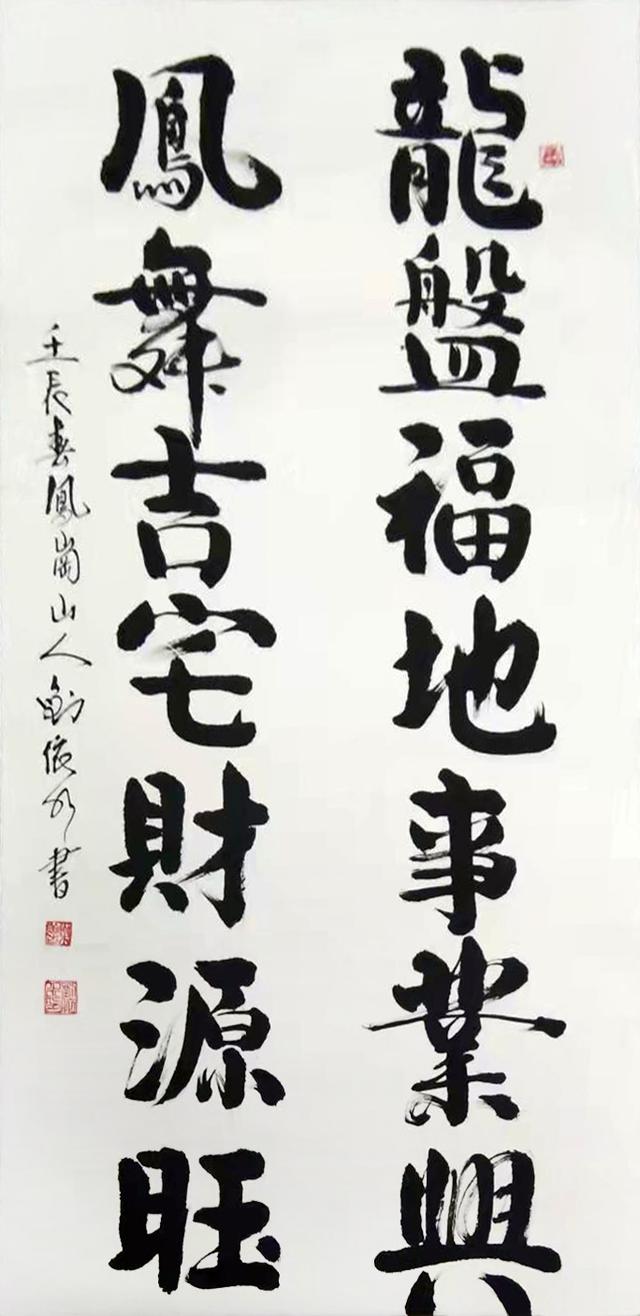 龍盤福地事業興
鳳舞吉宅財源旺
壬辰春鳳崗山人劉依水書